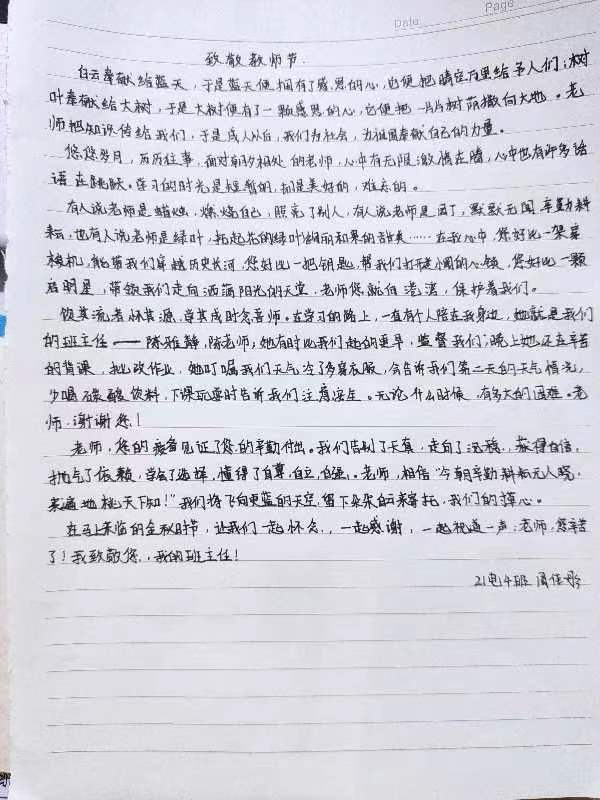 Date
Page
致敬教师节.
白云奉献给蓝天，于是蓝天便拥有了感恩的心，它便把晴空万里给予人们；树
叶奉献给大树，于是大树便有了一颗感恩的心，它便把一片片树荫撒向大地。老
师把知识传给我们，于是成人以后，我们为社会，为祖国奉献自己的力量。
悠悠岁月，历历往事，面对朝夕相处的老师，心中有无限激情在腾，心中也有许多话
语在跳跃。学习的时光是短暂的，却是美好的，难忘的。
有人说老师是蜡烛，燃烧自己，照亮了别人，有人说老师是园丁，默默无闻辛勤耕
耘，也有人说老师是绿叶，托起花的绿叶和果的甜美……在我心中，您好比一架穿
梭机，能带我们穿越历史长河，您好比一把钥匙，帮我们打开的心锁，您好比一颗
启明星，带领我们走向洒满阳光的天堂，老师您就向港湾，保护着我们。
饮其流者怀其源，学其成时念吾师。在学习的路上，一直有个人陪在我身边，她就是我们
的班主任——陈雅静，陈老师，她有时比我们起的更早，监督我们；晚上她还在辛苦
的背课，批改作业，她叮嘱我们天气冷了多穿衣服，会告诉我们第二天的天气情况，
少喝碳酸饮料，下课玩耍时告诉我们注意安全。无论什么时候，有多大的困难。老
师，谢谢您！
老师，您的疲惫见证了您的辛勤付出。我们告别了天真，走向了沉稳，获得自信，
抛弃了依赖，学会了选择，懂得了自尊，自立，自强。老师，相信“今朝辛勤耕耘无人晓，
来遍地桃天下知！”我们将飞向更蓝的天空，留下朵朵白云来寄托，我们的心。
在马上来临的金秋时节，让我们一起怀念，一起感谢，一起祝道一声：老师，您辛苦
了！我致敬您，我的班主任！
21电4班